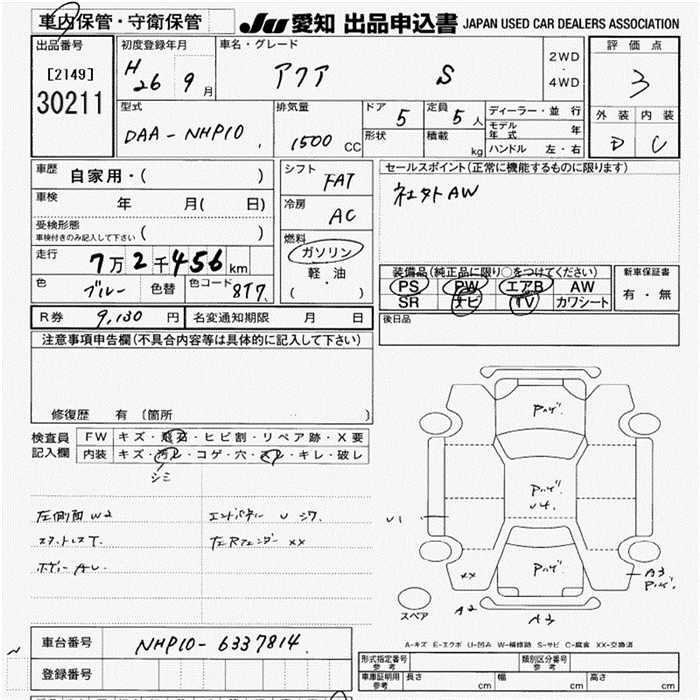 車内保管・守衛保管
JU 愛知 出品申込書 JAPAN USED CAR DEALERS ASSOCIATION
出品番号
[2149]
30211
初度登録年月
H 26 9 月
車名・グレード
アクア S
2WD
・
4WD
評価点
3
外装 内装
D C
型式
DAA-NHP10
排気量
1500 CC
ドア 5
形状
定員 5 人
積載 kg
ディーラー・並 行
モデル年式 年
ハンドル 左・右
車歴 自家用・( )
車検 年 月( 日)
受検形態
車検付きのみ記入して下さい ( )
走行 7万2千456km
色 ブルー 色替 色コード 8T7
シフト FAT
冷房 AC
燃料
ガソリン
軽・油
( )
セールスポイント(正常に機能するものに限ります)
社外AW
装備品(純正品に限り○をつけてください)
PS PW エアB AW
SR ナビ TV カワシート
新車保証書
有・無
R券 9,130 円 名変通知期限 月 日
後日品
注意事項申告欄(不具合内容等は具体的に記入して下さい)
修復歴 有 〔箇所 〕
検査員
記入欄
FW キズ・飛石・ヒビ割・リペア跡・X要
内装 キズ・汚レ・コゲ・穴・スレ・キレ・破レ
シミ
左側面 W2 エンドパネル U シワ
スタットレスT. 左Rフェンダー XX
ボディー AU
Pハゲ
Pハゲ
U4
U1
Pハゲ
XX
A3
Pハゲ
スペア
A2
A3
A-キズ E-エクボ U-凹み W-補修跡 S-サビ C-腐食 XX-交換済
車台番号 NHP10-6337814
登録番号
形式指定番号
参考
類別区分番号
参考
車庫証明用
参考
長さ cm 幅 cm 高さ cm